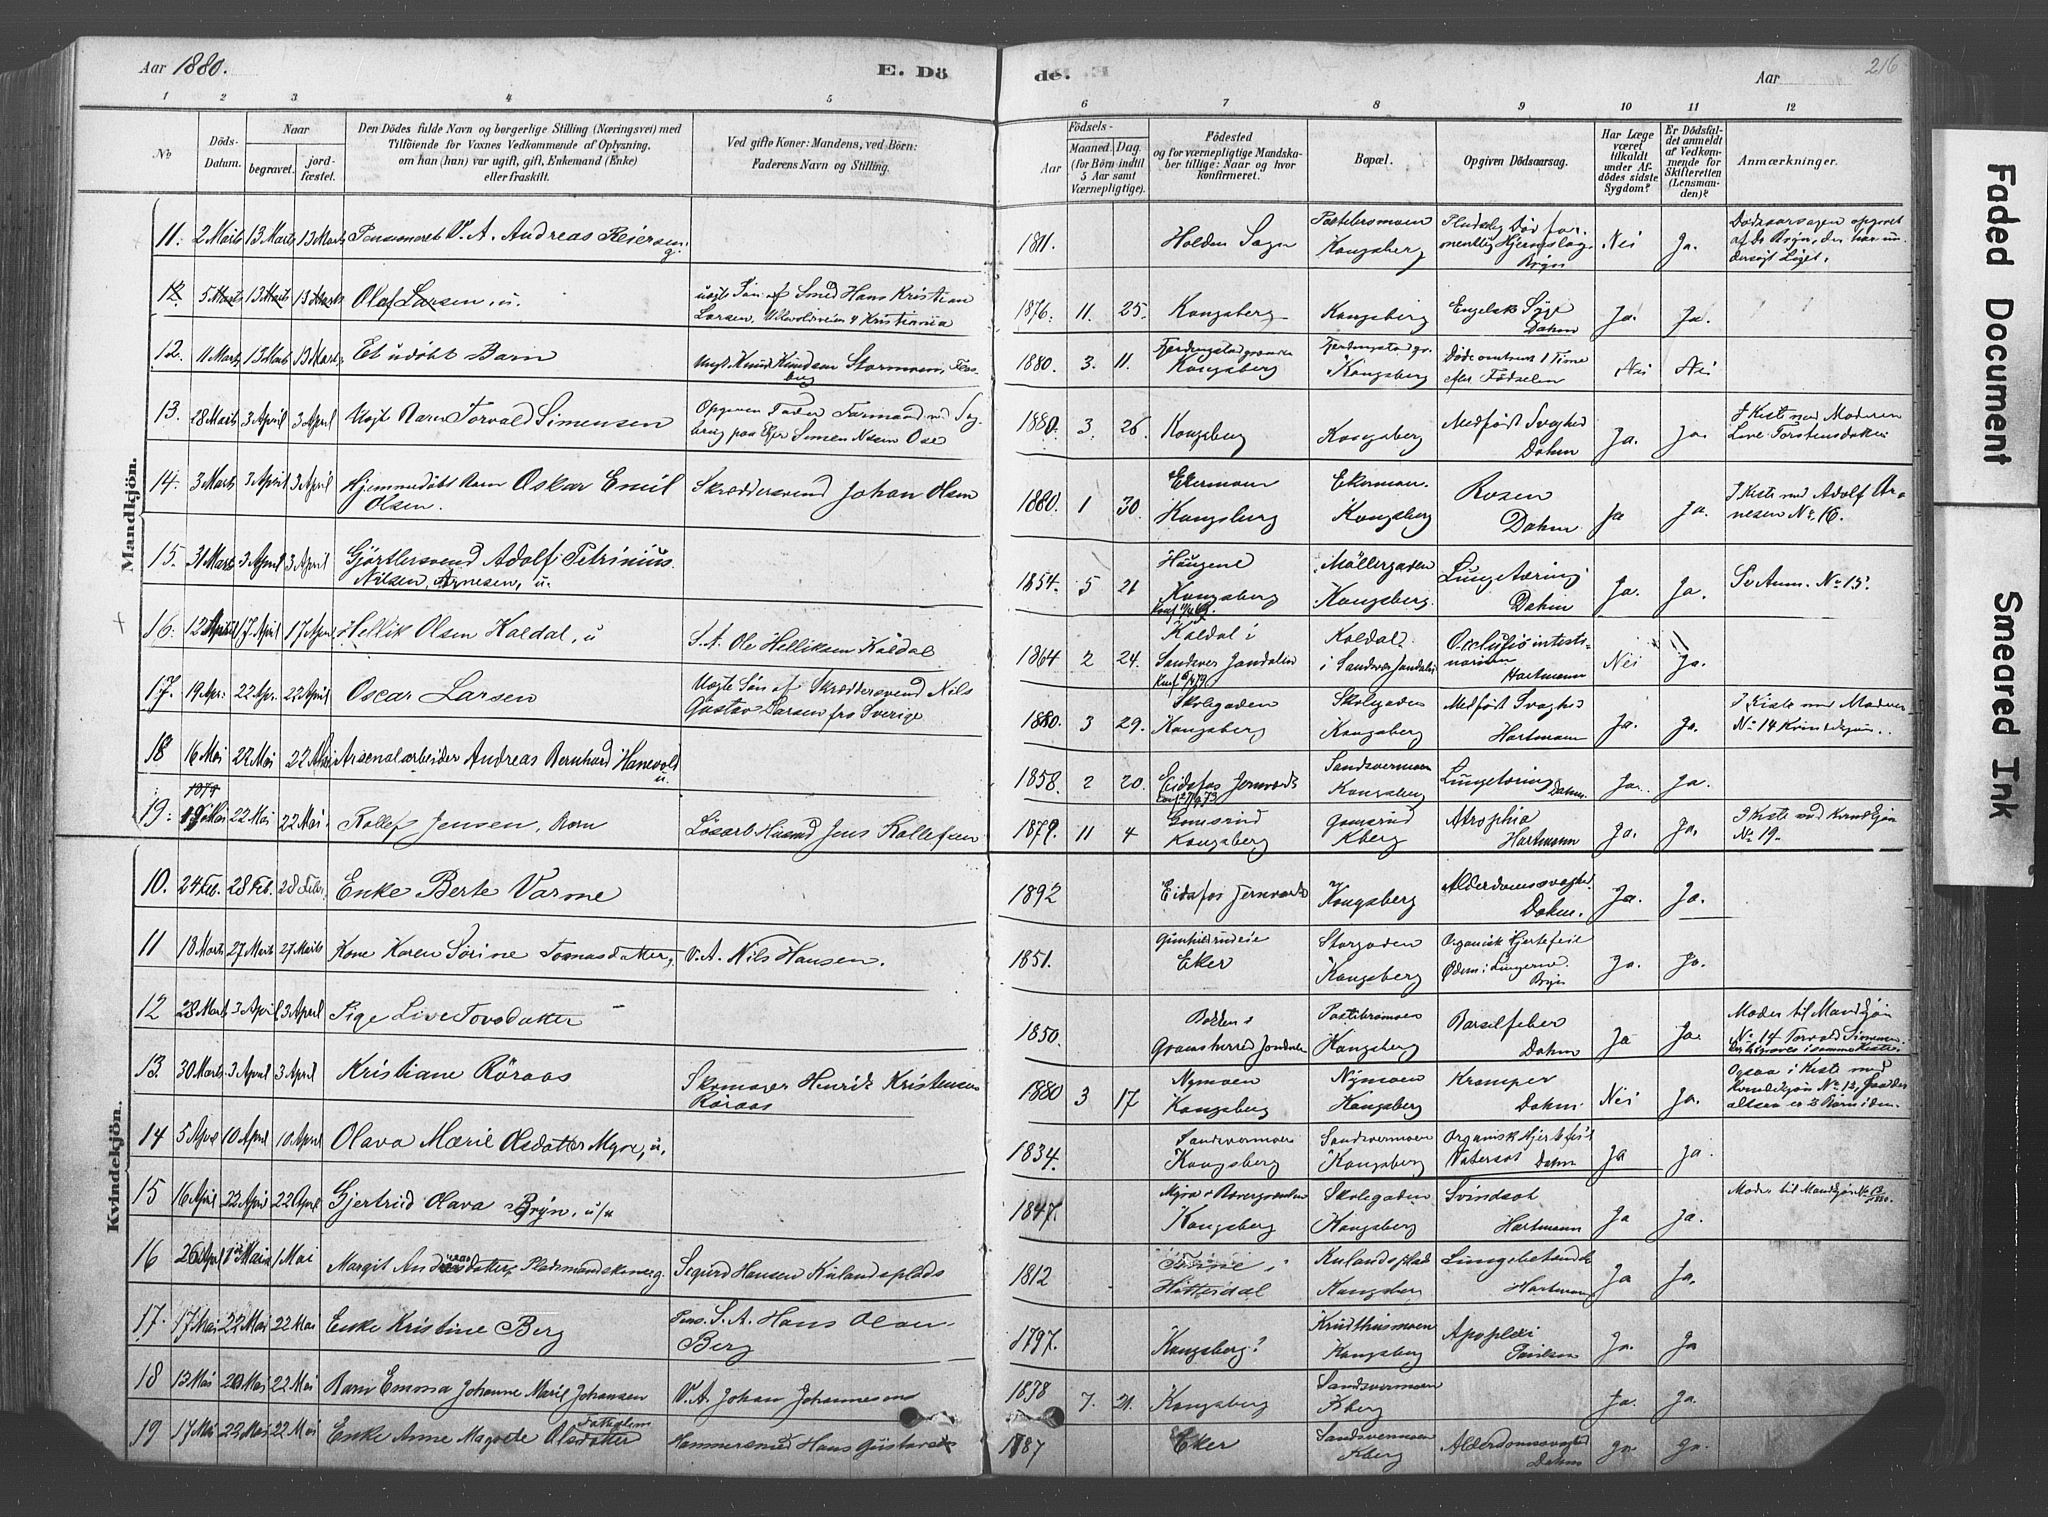 Aar 1880. E. Dö de. Aar 216
1 2 3 4 5 6 7 8 9 10 11 12
No Döds-Datum. Naar begravet. jordfæstet. Den Dödes fulde Navn og borgerlige Stilling (Næringsvei) med Tilföiende for Voxnes Vedkommende af Oplysning, om han (hun) var ugift, gift, Enkemand (Enke) eller fraskilt. Ved gifte Koner: Mandens, ved Börn: Faderens Navn og Stilling. Födsels- Aar Maaned. Dag. (for Börn indtil 5 Aar samt Værnepligtige). Födested og for værnepligtige Mandskaber tillige: Naar og hvor konfirmeret. Bopæl. Opgiven Dödsaarsag. Har Læge været tilkaldt under Afdödes sidste Sygdom? Er Dödsfaldet anmeldt af Vedkommende for Skifteretten (Lensmanden)? Anmærkninger.
Mandkjön.
11. 2 Marts 13 Marts 13 Marts Pensioneret V. A. Andreas Reiersen, g. 1811. Holden Sogn Kongsberg Nei Ja.
12 5 Marts 13 Marts 13 Marts Olaf Larsen, u. uægte Søn af Smed Hans Kristian Larsen, Kristiania 1876. 11. 25. Kongsberg Kongsberg Engelsk Syge Dahm Ja. Ja.
12. 11 Marts 13 Marts 13 Marts Et udöbt Barn Uægt. Knud Knudsen 1880. 3. 11. Kongsberg Kongsberg Döde omtrent 1 Time efter Födselen Nei Nei
13. 28 Marts 3 April 3 April Uægt Barn Torvald Simensen Opgiven Fader 1880. 3. 26. Kongsberg Kongsberg Medfödt Svaghed Dahm Ja. Ja. I Kiste med Moderen
14. 3 Marts 3 April 3 April Hjemmedöbt Barn Oskar Emil Olsen. Skræddersvend Johan Olsen 1880. 1 30. Ekermoen Kongsberg Ekermoen. Kongsberg Rosen Dahm Ja Ja. I Kiste med Adolf Arnesen No. 16.
15. 31 Marts 3 April 3 April Gjörtlersvend Adolf Petrinius Nilsen, Arnesen, u. 1854. 5 21 Haugene Kongsberg Möllergaden Kongsberg. Lungetæring Dahm Ja. Ja. Se Anm. No 15.
16. 12 April 17 April 17 April Hellik Olsen Koldal, u S. A. Ole Helliksen Koldal 1864 2 24. Koldal i Sandsver Jondalen Koldal i Sandsver Jondalen Hartmann Nei Ja.
17. 19 Apr. 22 Apr. 22 April Oscar Larsen Uægte Sön af Skræddersvend Nils Gustav Larsen fra Sverige 1880. 3 29. Skolegaden Kongsberg Skolegaden Kongsberg Medfödt Svaghed Hartmann Ja. Ja. I Kiste med Moder No 14 Kvindekjön.
18 16 Mai 22 Mai 22 Mai Arsenalarbeider Andreas Bernhard Hanevold u. 1858. 2 20. Eidsfos Jernværk Sandsvermoen Kongsberg Lungetæring Dahm. Ja. Ja.
19. 22 Mai 22 Mai. Rollef Jensen, Barn Jens Rollefsen 1879. 11 4 Gomsrud Kongsberg Gomsrud Kberg Atrophia Hartmann Ja. Ja. I Kiste med Kvindekjön No 19.
Kvindekjön.
10. 24 Feb. 28 Feb. 28 Febr. Enke Berte Varme 1892 Eidsfos Jernværk Kongsberg Alderdomssvaghed. Dahm. Ja. Ja.
11 18 Marts 27 Marts 27 Marts Kone Karen Sörine Tomasdatter, V. A. Nils Hansen. 1851. Eker Storgaden Kongsberg Organisk Hjertefeil Ödem i Lungerne Bryn Ja. Ja.
12 28 Marts 3 April 3 April Pige Live Tovsdatter 1850. Gransherred Jondalen Kongsberg Barselfeber Dahm Ja Ja. Moder til Mandkjön No 14 Torvald Simensen.
13. 30 Marts 3 April 3 April Kristiane Röraas Skomager Henrik Kristensen Röraas 1880 3 17 Nymoen Kongsberg Nymoen Kongsberg Kramper Dahm. Nei Ja. Ogsaa i Kiste med Kvindekjön No 12,
14 5 April 10 April 10 April Olava Marie Olsdatter Myre, u. 1834. Sandsvermoen Kongsberg Sandsvermoen Kongsberg Organisk Hjertefeil Vatersot Dahm Ja Ja.
15 16 April 22 April 22 April Gjertrud Olava Bryn, u/u 1847. Kongsberg Skolegaden Kongsberg Svindsot Hartmann Ja Ja. Moder til Mandkjön No
16 26 April 1 Mai 1 Mai Margit Andersdatter, g. Sigurd Hansen Kulandsplads 1812 Hitterdal Kongsberg Hartmann Ja Ja.
17. 17 Mai 22 Mai 22 Mai Enke Kristine Berg Pens. S. A. Hans Olsen Berg 1797. Kongsberg? Krudthusmoen Kongsberg Apoplexi Ja. Ja
18 13 Mai 20 Mai 22 Mai Barn Emma Johanne Marie Johansen V. A. Johan Johannesen 1878 7. 21. Kongsberg Sandsvermoen Kberg Ja. Ja.
19 17 Mai 22 Mai 22 Mai Enke Anne Magrete Olsdatter Hammersmed Hans Gustavs 1787 Eker Sandsvermoen Kberg Alderdomssvaghed Dahm Ja. Ja.
Faded Document
Smeared Ink